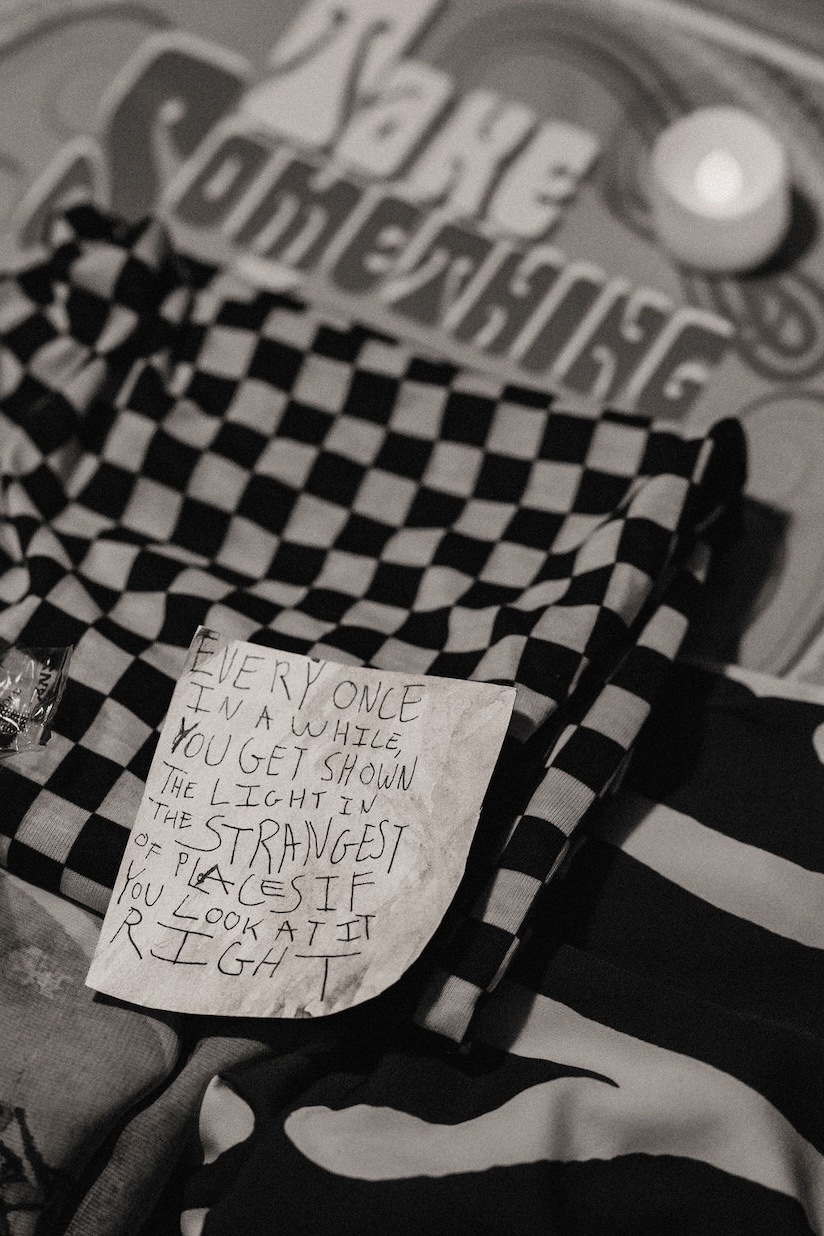 Take
Something
EVERY ONCE
IN A WHILE,
YOU GET SHOWN
THE LIGHT IN
THE STRANGEST
OF PLACES IF
YOU LOOK AT IT
RIGHT